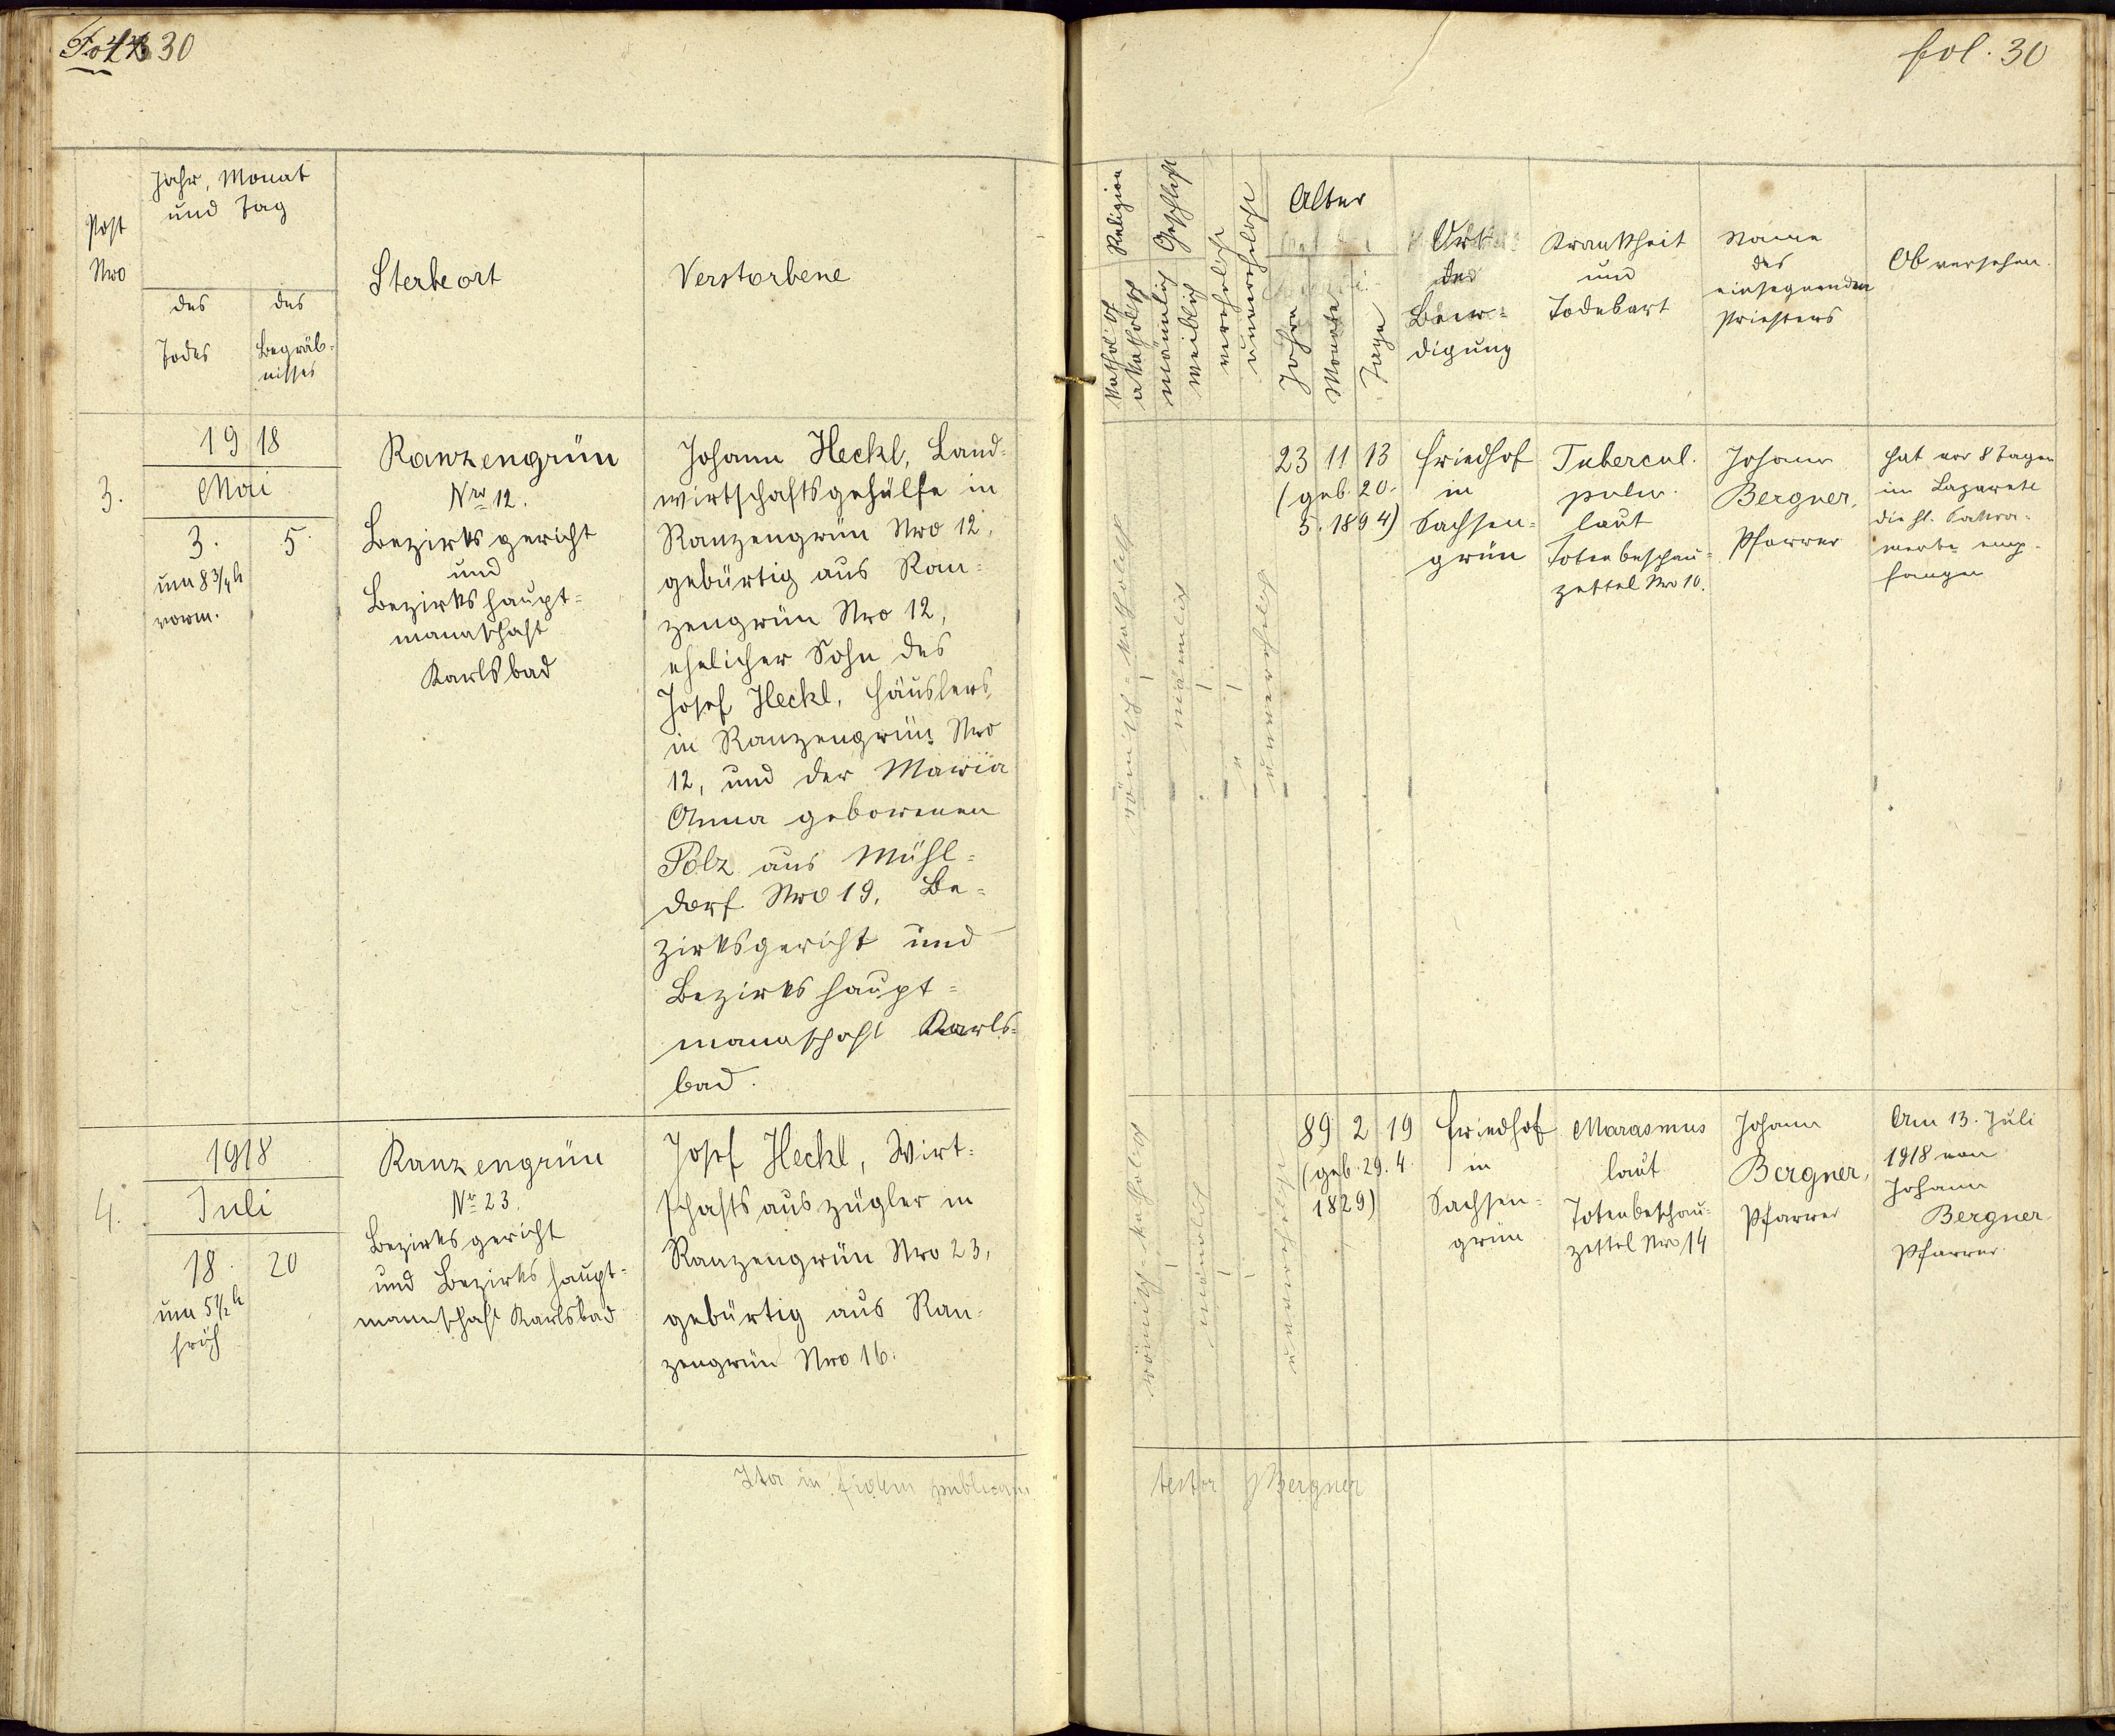 30
fol. 30
Post
Nro
Jahr, Monat
und Tag
des
Todes
des
Begräb-
nisses
Sterbeort
Verstorbene
Religion
kathol'sch
akatholisch
Geschlecht
männlich
weiblich
verehelicht
unverehelicht
Alter
Jahre
Monate
Tage
Ort
der
Beer-
digung
Krankheit
und
Todesart
Name
des
einsegnenden
Priesters
Ob versehen.
3.
1918
Mai
3.
um 8 3/4 h
vorm.
5.
Ranzengrün
Nro 12.
Bezirksgericht
und
Bezirkshaupt-
mannschaft
Karlsbad
Johann Heckl, Land-
wirtschaftsgehülfe in
Ranzengrün Nro 12,
gebürtig aus Ran-
zengrün Nro 12,
ehelicher Sohn des
Josef Heckl, Häuslers
in Ranzengrün Nro
12, und der Maria
Anna geborenen
Pölz aus Mühl-
dorf Nro 19, Be-
zirksgericht und
Bezirkshaupt-
mannschaft Karls-
bad.
römisch-katholisch
männlich
unverehelicht
23 11 13
(geb. 20.
5. 1894)
Friedhof
in
Sachsen-
grün
Tubercul.
pulm.
laut
Totenbeschau-
zettel Nro 10.
Johann
Bergner,
Pfarrer
Hat vor 8 Tagen
im Lazarete
die hl. Sakra-
mente emp-
fangen
4.
1918
Juli
18.
um 5 1/2 h
früh
20
Ranzengrün
Nr 23.
Bezirksgericht
und Bezirkshaupt-
mannschaft Karlsbad
Josef Heckl, Wirt-
schaftsauszügler in
Ranzengrün Nro 23,
gebürtig aus Ran-
zengrün Nro 16.
römisch-katholisch
männlich
89 2 19
(geb. 29. 4.
1829)
Friedhof
in
Sachsen-
grün
Marasmus
laut
Totenbeschau-
zettel Nro 14
Johann
Bergner,
Pfarrer
Am 13. Juli
1918 von
Johann
Bergner
Pfarrer.
Ita in fidem publicam
testor JBergner